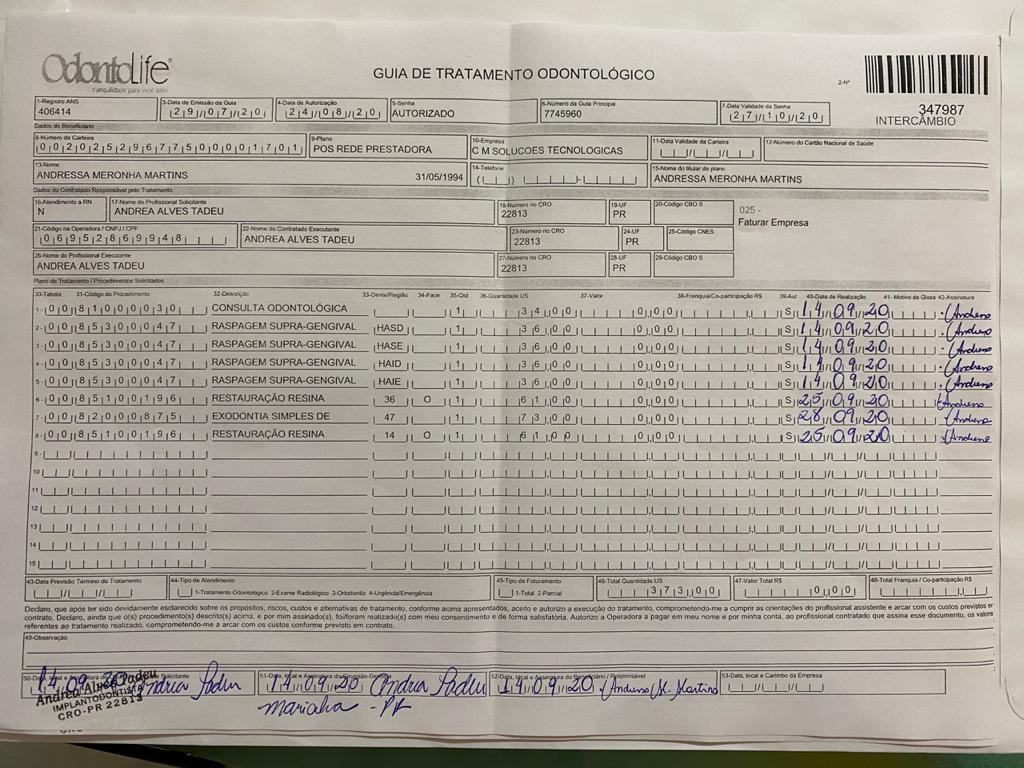 OdontoLife
Tranquilidade para você sorrir
GUIA DE TRATAMENTO ODONTOLÓGICO
2-Nº
347987
INTERCÂMBIO
1-Registro ANS 3-Data de Emissão da Guia 4-Data de Autorização 5-Senha 6-Número da Guia Principal 7-Data Validade da Senha
406414 29/07/20 24/08/20 AUTORIZADO 7745960 27/10/20
Dados do Beneficiário
8-Número da Carteira 9-Plano 10-Empresa 11-Data Validade da Carteira 12-Número do Cartão Nacional de Saúde
00202529677500001701 POS REDE PRESTADORA C M SOLUCOES TECNOLOGICAS
13-Nome 14-Telefone 15-Nome do titular do plano
ANDRESSA MERONHA MARTINS 31/05/1994 ANDRESSA MERONHA MARTINS
Dados do Contratado Responsável pelo Tratamento
16-Atendimento a RN 17-Nome do Profissional Solicitante 18-Número no CRO 19-UF 20-Código CBO S
N ANDREA ALVES TADEU 22813 PR
025 -
Faturar Empresa
21-Código na Operadora / CNPJ / CPF 22-Nome do Contratado Executante 23-Número no CRO 24-UF 25-Código CNES
06952869948 ANDREA ALVES TADEU 22813 PR
26-Nome do Profissional Executante 27-Número no CRO 28-UF 29-Código CBO S
ANDREA ALVES TADEU 22813 PR
Plano de Tratamento / Procedimentos Solicitados
30-Tabela 31-Código do Procedimento 32-Descrição 33-Dente/Região 34-Face 35-Qtd 36-Quantidade US 37-Valor 38-Franquia/Co-participação R$ 39-Aut 40-Data de Realização 41- Motivo da Glosa 42-Assinatura
1- 00 81000030 CONSULTA ODONTOLÓGICA 1 34,00 0,00 S 14/09/20
2- 00 85300047 RASPAGEM SUPRA-GENGIVAL HASD 1 36,00 0,00 S 14/09/20
3- 00 85300047 RASPAGEM SUPRA-GENGIVAL HASE 1 36,00 0,00 S 14/09/20
4- 00 85300047 RASPAGEM SUPRA-GENGIVAL HAID 1 36,00 0,00 S 14/09/20
5- 00 85300047 RASPAGEM SUPRA-GENGIVAL HAIE 1 36,00 0,00 S 14/09/20
6- 00 85100196 RESTAURAÇÃO RESINA 36 O 1 61,00 0,00 S 25/09/20
7- 00 82000875 EXODONTIA SIMPLES DE 47 1 73,00 0,00 S 28/09/20
8- 00 85100196 RESTAURAÇÃO RESINA 14 O 1 61,00 0,00 S 25/09/20
9-
10
11
12
13
14
15
43-Data Previsão Término do Tratamento 44-Tipo de Atendimento 45-Tipo de Faturamento 46-Total Quantidade US 47-Valor Total R$ 48-Total Franquia / Co-participação R$
1-Tratamento Odontológico 2-Exame Radiológico 3-Ortodontia 4-Urgência/Emergência 1-Total 2-Parcial 373,00 0,00
Declaro, que após ter sido devidamente esclarecido sobre os propósitos, riscos, custos e alternativas de tratamento, conforme acima apresentados, aceito e autorizo a execução do tratamento, comprometendo-me a cumprir as orientações do profissional assistente e arcar com os custos previstos em
contrato. Declaro, ainda que o(s) procedimento(s) descrito(s) acima, e por mim assinado(s), foi/foram realizado(s) com meu consentimento e de forma satisfatória. Autorizo a Operadora a pagar em meu nome e por minha conta, ao profissional contratado que assina esse documento, os valores
referentes ao tratamento realizado, comprometendo-me a arcar com os custos conforme previsto em contrato.
49-Observação
53-Data, local e Carimbo da Empresa
14/09/20 14/09/20 14/09/20
Andrea Alves Tadeu
IMPLANTODONTISTA
CRO-PR 22813